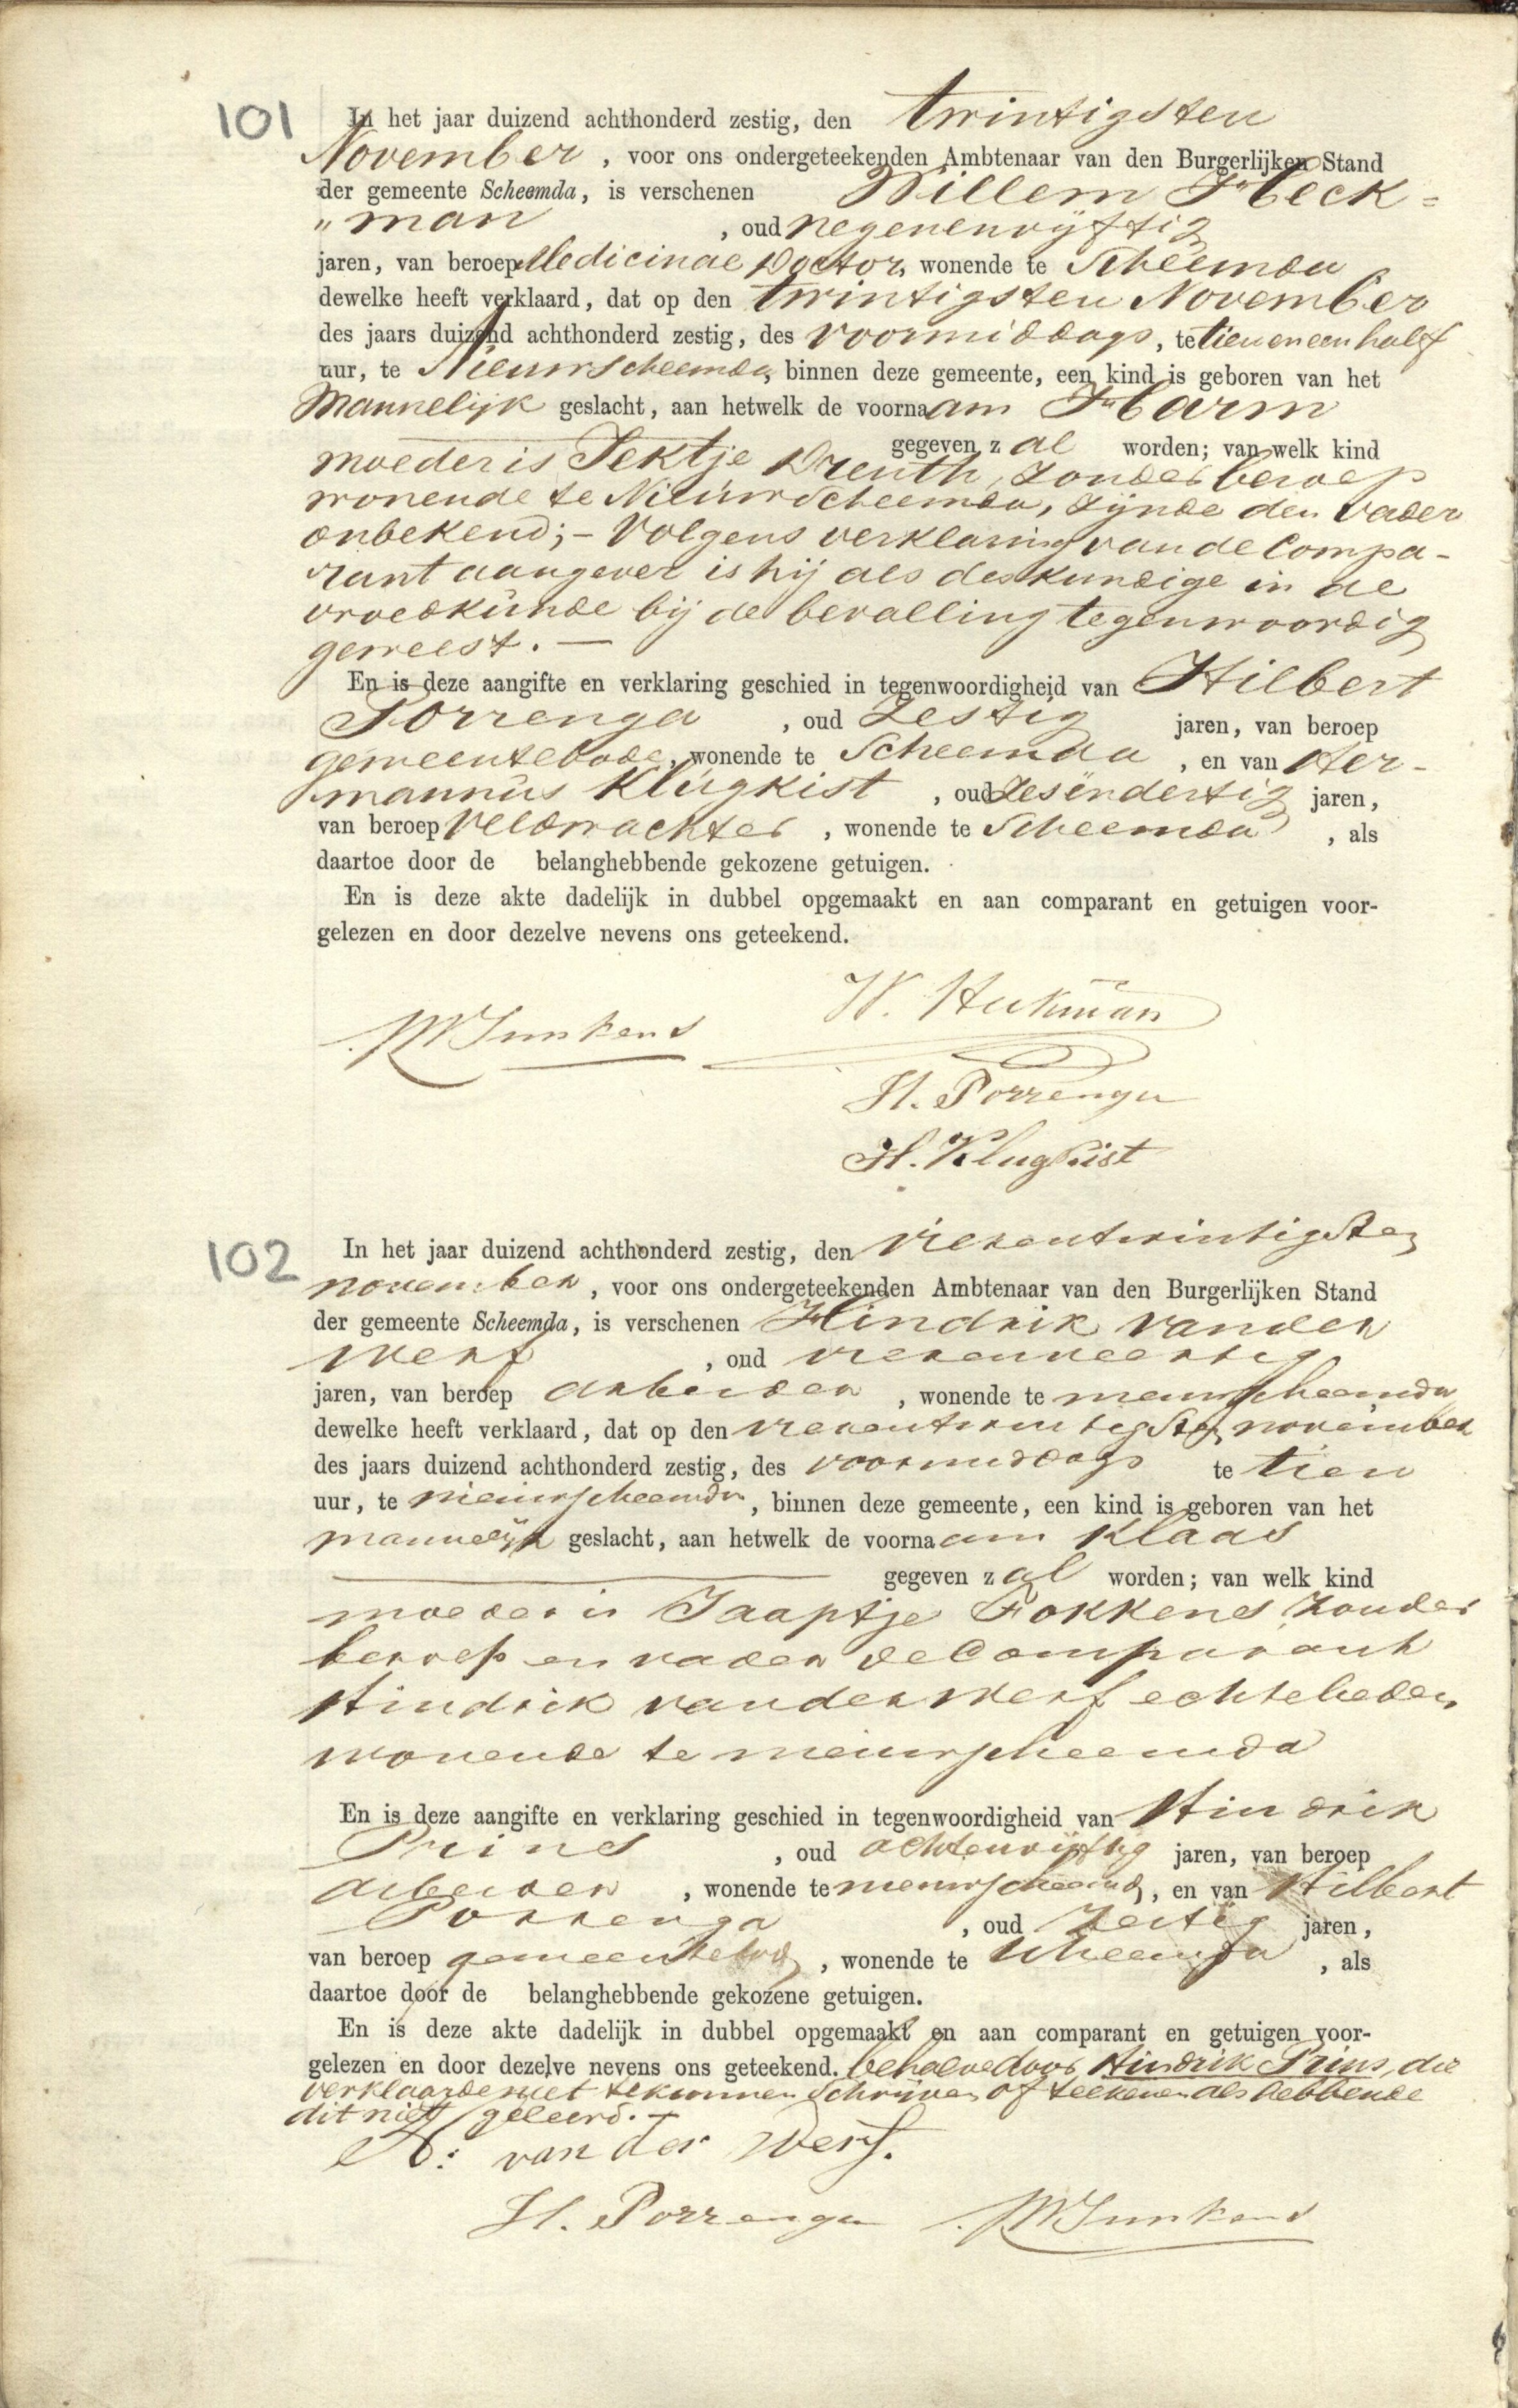 101
In het jaar duizend achthonderd zestig, den twintigsten
November, voor ons ondergeteekenden Ambtenaar van den Burgerlijken Stand
der gemeente Scheemda, is verschenen Willem Heck=
"man, oud negenenvijftig
jaren, van beroep Medicinae Doctor, wonende te Scheemda
dewelke heeft verklaard, dat op den twintigsten November
des jaars duizend achthonderd zestig, des voormiddags, te tien en een half
uur, te Nieuwscheemda, binnen deze gemeente, een kind is geboren van het
Mannelijk geslacht, aan hetwelk de voornaam Harm
gegeven zal worden; van welk kind
moeder is Tektje Drenth, zonder beroep
wonende te Nieuwscheemda, zijnde den vader
onbekend;- Volgens verklaring van de Compa-
rant aangever is hij als deskundige in de
vroedkunde bij de bevalling tegenwoordig
geweest. —
En is deze aangifte en verklaring geschied in tegenwoordigheid van Hilbert
Porrenga, oud Zestig jaren, van beroep
gemeentebode, wonende te Scheemda, en van Her-
mannus Klugkist, oud Zesendertig jaren,
van beroep veldwachter, wonende te Scheemda, als
daartoe door de belanghebbende gekozene getuigen.
En is deze akte dadelijk in dubbel opgemaakt en aan comparant en getuigen voor-
gelezen en door dezelve nevens ons geteekend.
W. Hekman
Junkens
H. Porrenga
H. Klugkist
102
In het jaar duizend achthonderd zestig, den vierentwintigsten
november, voor ons ondergeteekenden Ambtenaar van den Burgerlijken Stand
der gemeente Scheemda, is verschenen Hindrik van der
Werf, oud vierenveertig
jaren, van beroep arbeider, wonende te nieuwscheemda
dewelke heeft verklaard, dat op den vierentwintigsten november
des jaars duizend achthonderd zestig, des voormiddags te tien
uur, te nieuwscheemda, binnen deze gemeente, een kind is geboren van het
mannelijk geslacht, aan hetwelk de voornaam Klaas
gegeven zal worden; van welk kind
moeder is Jaaptje Fokkens zonder
beroep en vader de Comparant
Hindrik van der Werf echtelieden
wonende te nieuwscheemda
En is deze aangifte en verklaring geschied in tegenwoordigheid van Hindrik
Prins, oud achtenvijftig jaren, van beroep
arbeider, wonende te nieuwscheemda, en van Hilbert
Porrenga, oud Zestig jaren,
van beroep gemeentebode, wonende te Scheemda, als
daartoe door de belanghebbende gekozene getuigen.
En is deze akte dadelijk in dubbel opgemaakt en aan comparant en getuigen voor-
gelezen en door dezelve nevens ons geteekend. behalve door Hindrik Prins, die
verklaarde niet te kunnen Schrijven of teekenen als hebbende
dit niet geleerd. —
H: van der Werf.
H. Porrenga Junkens